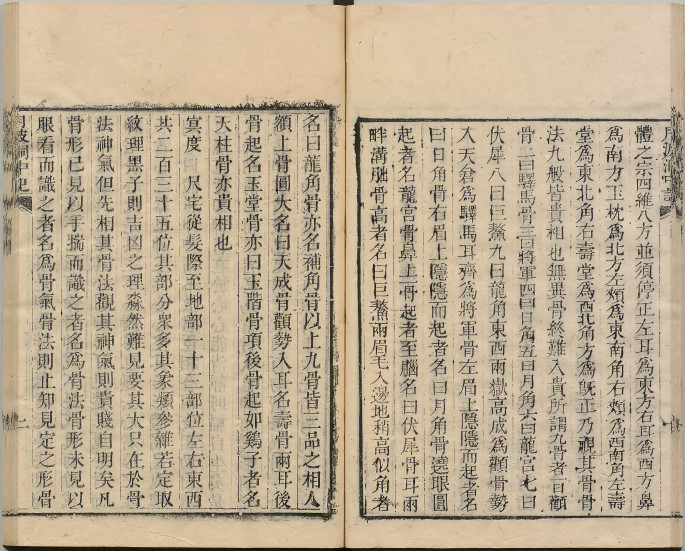 體之宗四維八方並須停正左耳爲東方右耳爲西方鼻
爲南方玉枕爲北方左頰爲東南角右頰爲西南角左壽
堂爲東北角右壽堂爲西北角方爲旣正乃視其骨骨
法九般皆貴相也無異骨終難入貴所謂九骨者一曰顴
骨二曰驛馬骨三曰將軍四曰日角五曰月角六曰龍宮七曰
伏犀八曰巨鰲九曰龍角東西兩嶽高成曰顴骨勢
入天倉爲驛馬耳齊爲將軍骨左眉上隱隱而起者名
曰日角骨右眉上隱隱而起者名曰月角骨遶眼圓
起者名龍宮骨鼻上一骨起者至腦名曰伏犀骨耳兩
畔溝朏骨高者名曰巨鰲兩眉毛入邊地稍高似角者
名曰龍角骨亦名補角骨以上九骨皆三品之相人
額上骨圓大名曰天成骨顴勢入耳名壽骨兩耳後
骨起名玉堂骨亦曰玉階骨項後骨起如鷄子者名
天柱骨亦貴相也
寘度 尺宅從髮際至地部一十三部位左右東西
共二百三十五位其部分衆多其象類參雜若定取
紋理黑子則吉凶之理淼然難見要其大只在於骨
法神氣但先相其骨法觀其神氣則貴賤自明矣凡
骨形已見以手揣而識之者名爲骨法骨形未見以
眼看而識之者名爲骨氣骨法則止知見定之形骨
月波洞中記
二